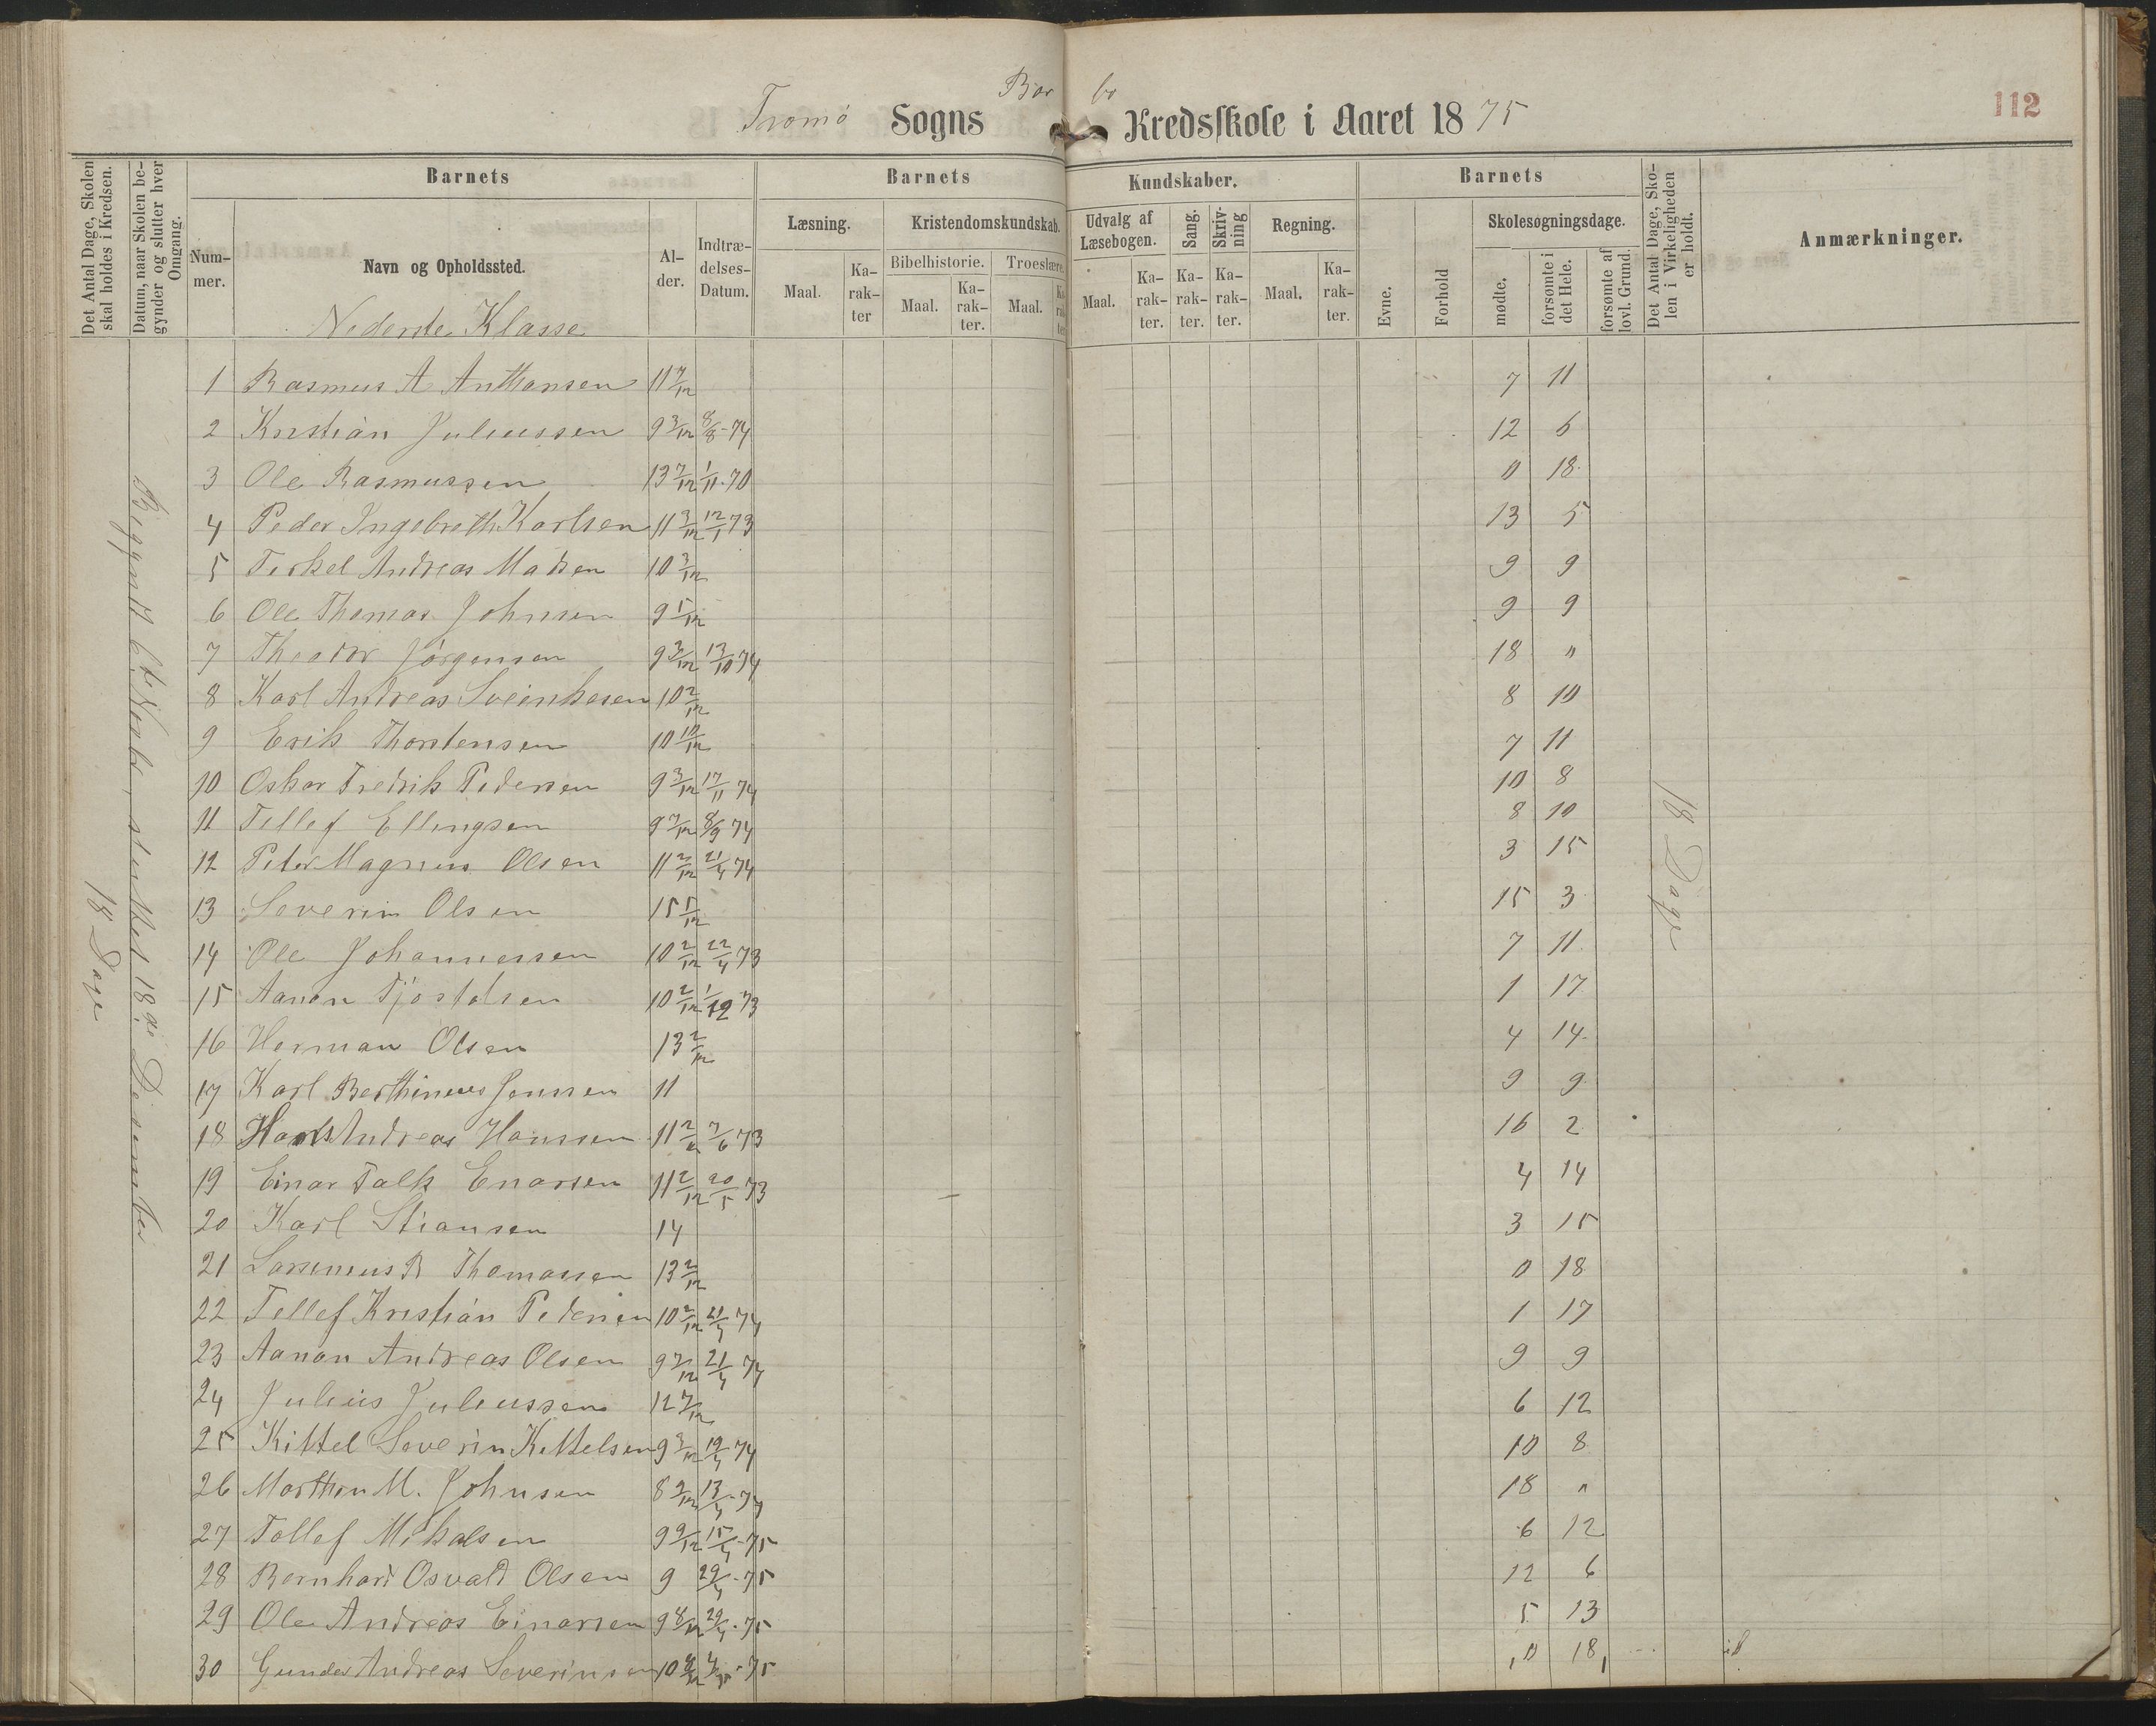 112
Tromø Sogns Bor bo Kredsskole i Aaret 1875
Det Antal Dage, Skolen skal holdes i Kredsen.
Datum, naar Skolen begynder og slutter hver Omgang.
Barnets
Nummer.
Navn og Opholdssted.
Alder.
Indtrædelses-Datum.
Barnets Kundskaber.
Læsning. Maal. Karakter
Kristendomskundskab.
Bibelhistorie. Maal. Karakter.
Troeslære. Maal.
Udvalg af Læsebogen. Maal. Karakter.
Sang. Karakter.
Skrivning Karakter.
Regning. Maal. Karakter.
Barnets
Evne.
Forhold
Skolesøgningsdage.
mødte.
forsømte i det Hele.
forsømte af lovl. Grund.
Det Antal Dage, Skolen i Virkeligheden er holdt.
Anmærkninger.
Nederste Klasse
18 Dage
Begyndt 6te Novbr, sluttet 18de Desember
18 Dage
1 Rasmus A Anthonsen 11 7/12 7 11
2 Kristian Juliussen 9 3/12 8/8-74 12 6
3 Ole Rasmussen 13 7/12 1/11-70 0 18
4 Peder Ingebreth Karlsen 11 3/12 12/1 73 13 5
5 Terkel Andreas Madsen 10 3/12 9 9
6 Ole Thomas Johnsen 9 5/12 9 9
7 Theodor Jørgensen 9 3/12 13/10 74 18 "
8 Karl Andreas Sveinhesen 10 2/12 8 10
9 Erik Thorstensen 10 10/12 7 11
10 Oskar Fredrik Pedersen 9 3/12 17/11 74 10 8
11 Tellef Ellingsen 9 7/12 8/9 74 8 10
12 Peter Magnus Olsen 11 2/12 21/4 74 3 15
13 Severin Olsen 15 5/12 15 3
14 Ole Johannessen 10 2/12 22/4 73 7 11
15 Aanon Tjostolsen 10 2/12 1/12 73 1 17
16 Herman Olsen 13 2/12 4 14
17 Karl Berthineus Jensen 11 9 9
18 Hans Andreas Hanssen 11 7/6 73 16 2
19 Einar Falk Enarsen 11 2/12 20/5 73 4 14
20 Karl Stiansen 14 3 15
21 Larsineus B Thomassen 13 2/12 0 18
22 Tellef Kristian Pedersen 10 2/12 21/4 74 1 17
23 Aanon Andreas Olsen 9 7/12 21/4 74 9 9
24 Julius Juliussen 12 7/12 6 12
25 Kittel Severin Kittelsen 9 3/12 19/4 74 10 8
26 Marthin M. Johnsen 8 9/12 13/4-74 18 "
27 Tollef Mikalsen 9 9/12 15/4-75 6 12
28 Bernhard Osvald Olsen 9 29/4-75 12 6
29 Ole Andreas Einarsen 9 8/12 29/4-75 5 13
30 Gunder Andreas Severinsen 10 75 0 18